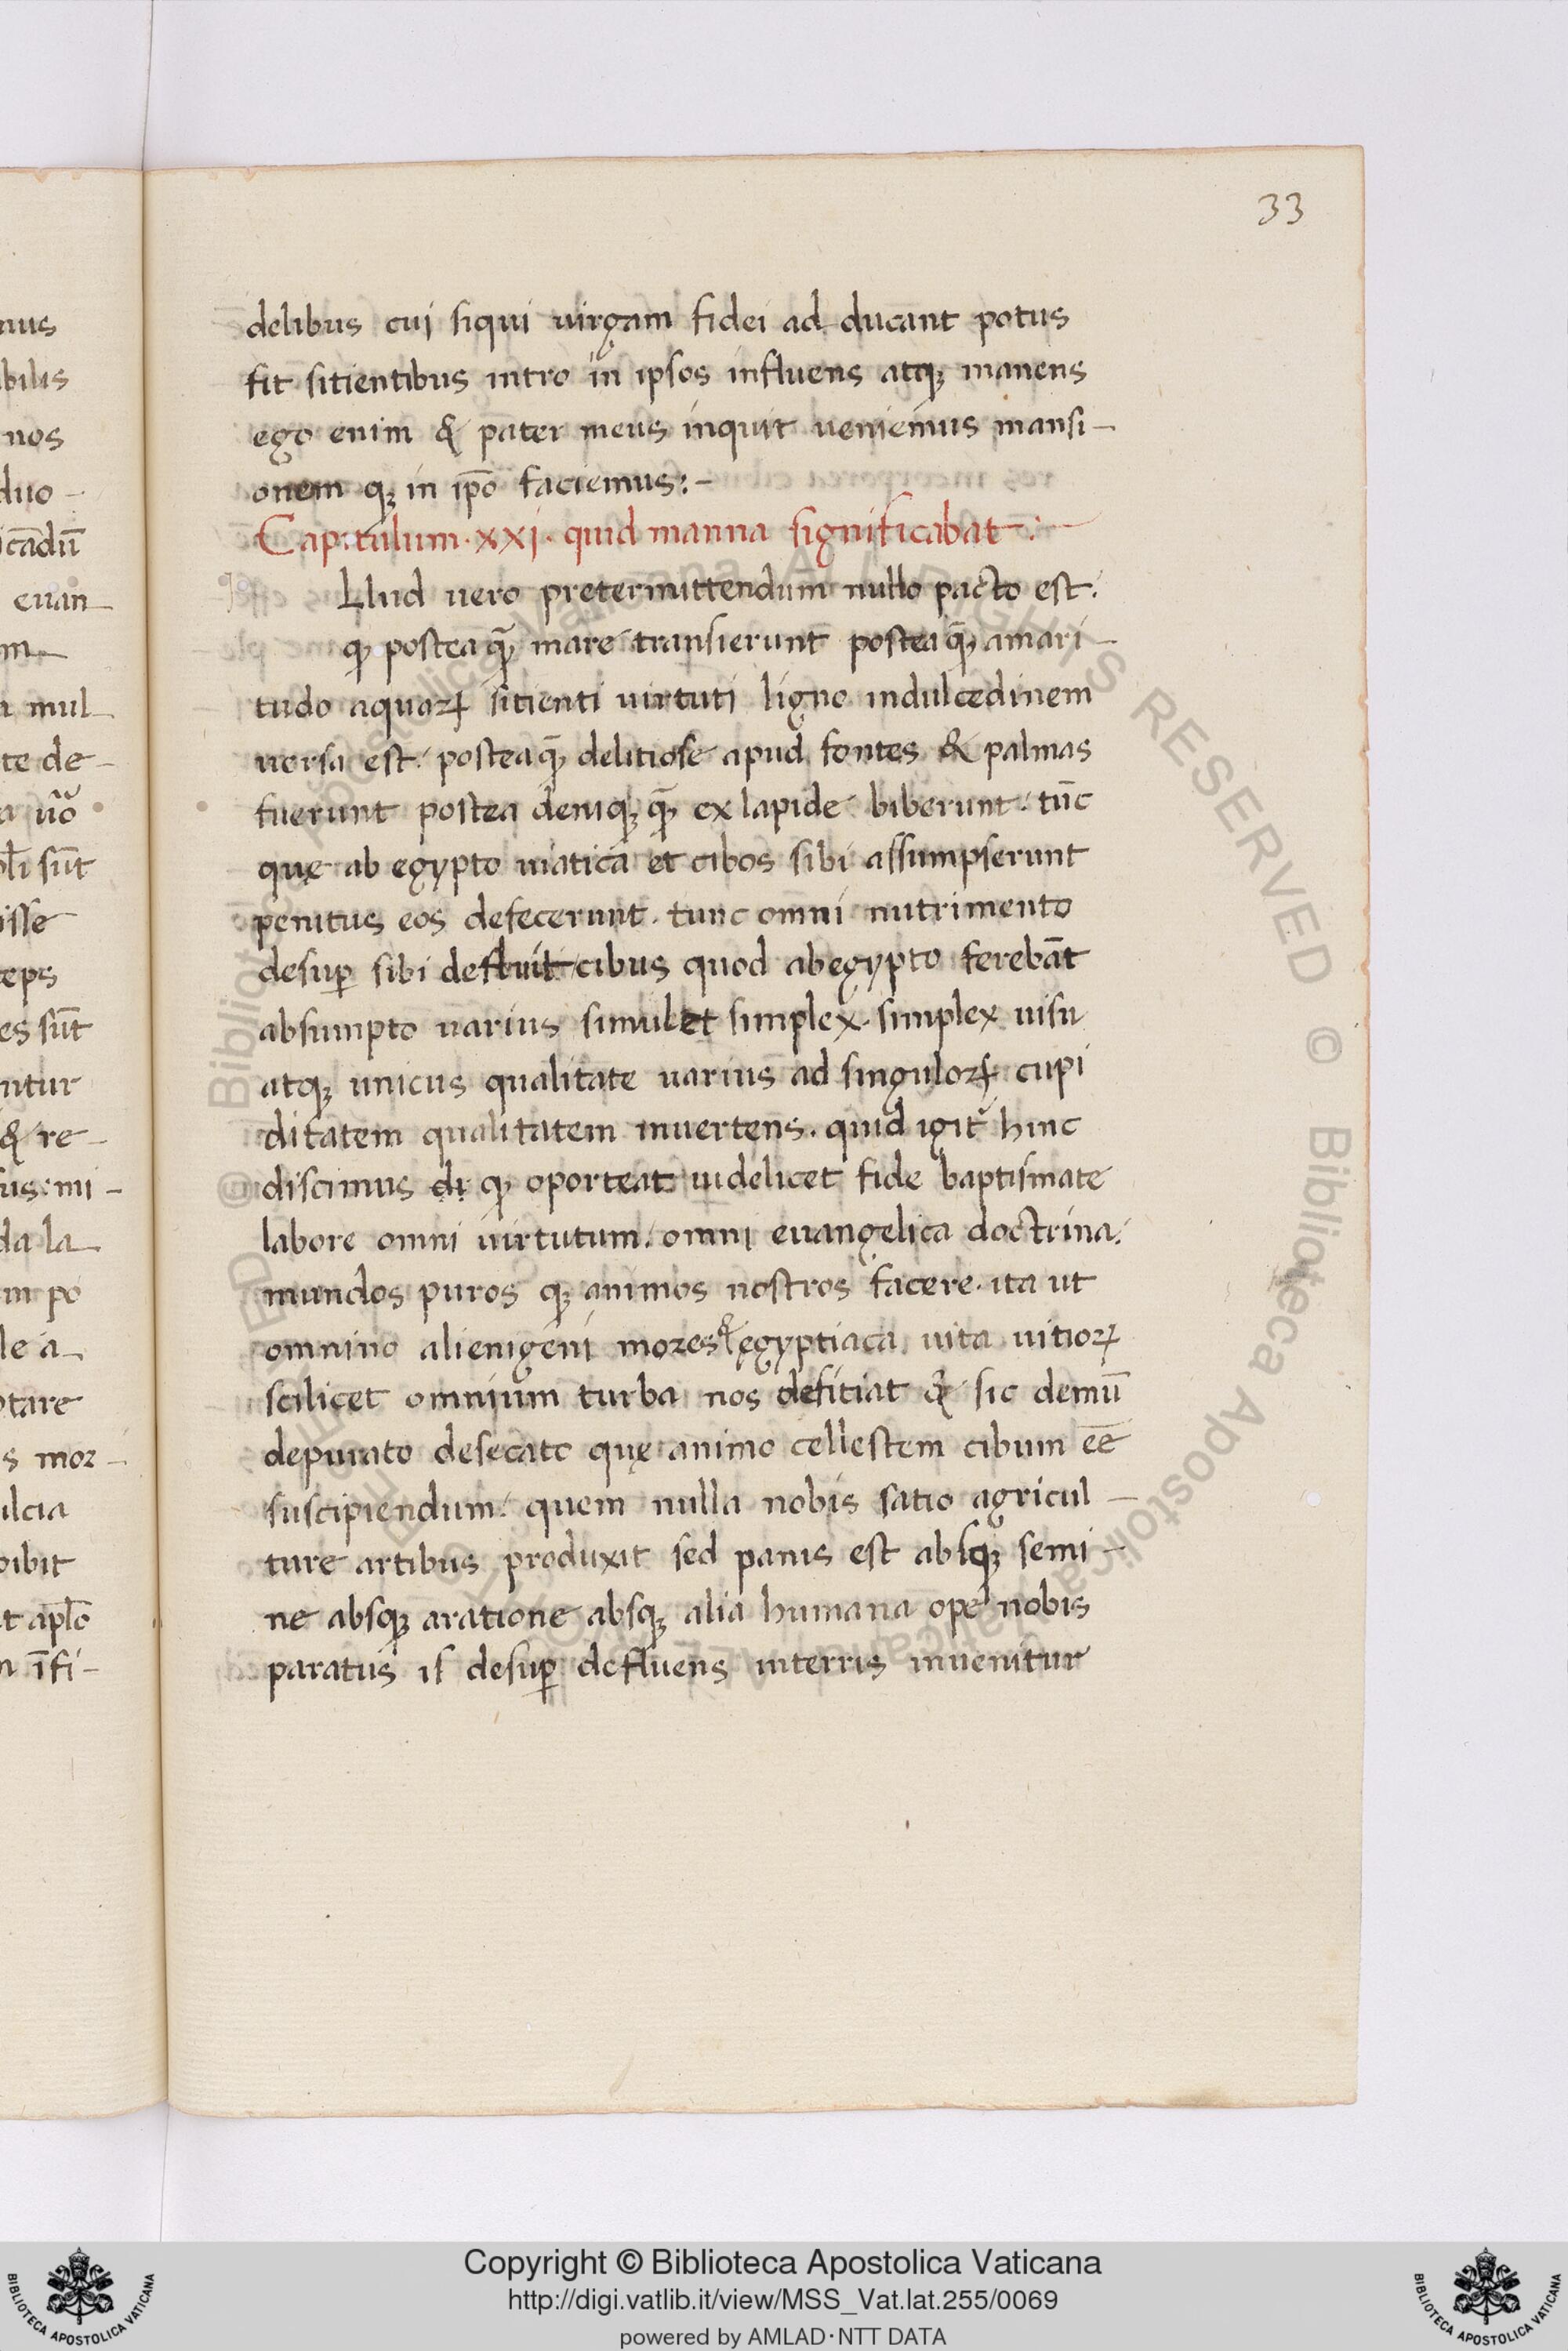 33
delibus cuj siqui uirgam fidei ad ducant potus
fit sitientibus intro in ipsos influens atqꝫ manens
ego enim & pater meus inquit ueniemus mansi-
onem qꝫ in ip̄o faciemus:-
Capitulum·xxj· quid manna significabat:
Llud uero pretermittendum nullo pacto est.
ꝙ postea q̄ꝫ mare transierunt postea q̄ꝫ amari-
tudo aquoꝝ sitienti uirtuti ligno indulcedinem
uersa est. postea q̄ꝫ delitiose apud fontes & palmas
fuerunt postea deniqꝫ q̄ꝫ ex lapide biberunt. tūc
quę ab egypto uiatica et cibos sibi assumpserunt
penitus eos defecerunt. tunc omni nutrimento
desuꝑ sibi defluit cibus quod ab egypto ferebāt
absumpto uarius simul et simplex. simplex uisu
atqꝫ unicus qualitate uarius ad singuloꝝ cupi
ditatem qualitatem inuertens. quid igit᷑ hinc
discimus ꝙ oporteat uidelicet fide baptismate
labore omni uirtutum. omni euangelica doctrina.
mundos puros qꝫ animos nostros facere. ita ut
omnino alienigeni mores & ęgyptiaca uita uitioꝝ
scilicet omnium turba nos defitiat & sic demū
depurato desecato quę animo cellestem cibum eē
suscipiendum. quem nulla nobis satio agricul-
ture artibus produxit sed panis est absqꝫ semi-
ne absqꝫ aratione absqꝫ alia humana ope nobis
paratus is desuꝑ defluens interris inuenitur
nus
bilis
nos
duo-
icādū
euan-
m-
mul-
te de-
uō
sūt
isse
teps
es sūt
ntur
& re-
mi-
da la-
m po
le a-
tare
s mor-
ulcia
bibit
t apl̄o
n īfi-
Copyright © Biblioteca Apostolica Vaticana
http://digi.vatlib.it/view/MSS_Vat.lat.255/0069
powered by AMLAD·NTT DATA
BIBLIOTECA APOSTOLICA VATICANA
BIBLIOTECA APOSTOLICA VATICANA